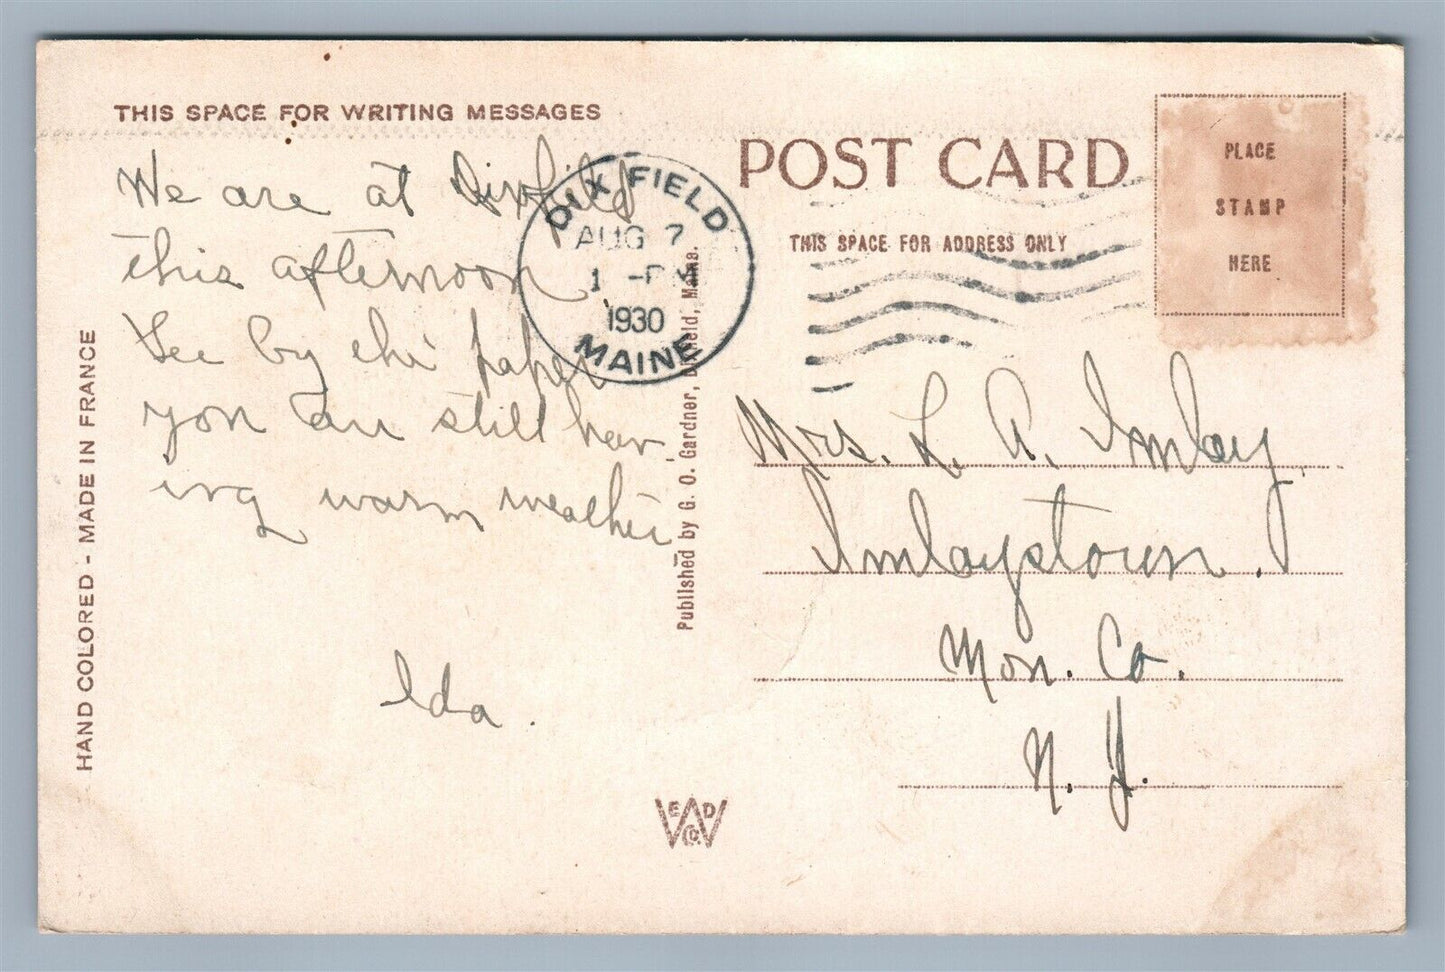 THIS SPACE FOR WRITING MESSAGES
We are at Dixfield
this afternoon
See by the paper
you are still hav
ing warm weather
Ida.
HAND COLORED - MADE IN FRANCE
DIXFIELD
AUG 7
1 -PM
1930
MAINE
Published by G. O. Gardner, Dixfield, Maine.
POST CARD
THIS SPACE FOR ADDRESS ONLY
PLACE
STAMP
HERE
Mrs. L. A. Imlay,
Imlaystown.
Mon. Co.
N. J.